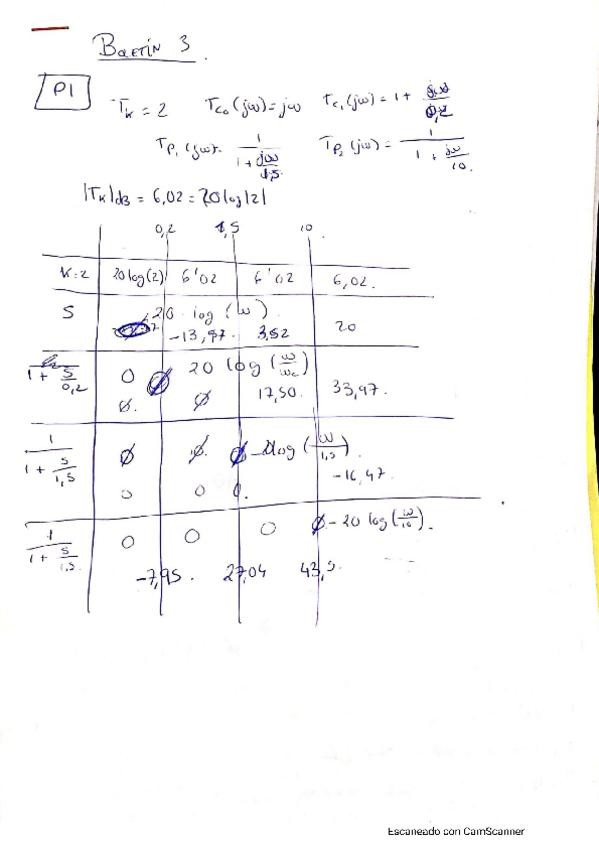 Boletín 3.
P1
Tk = 2 Tc0 (jω) = jω Tc1 (jω) = 1 + jω/0,2
Tp1 (jω) = 1/(1 + jω/1,5) Tp2 (jω) = 1/(1 + jω/10)
|Tk|dB = 6,02 = 20 log |2|
0,2 1,5 10
K=2 20 log(2) 6'02 6'02 6,02.
S 20 log (ω)
-13,97 3,52 20
1 + S/0,2 0 ∅ 20 log (ω/ωc)
∅. ∅ 17,50. 33,97.
1/(1 + S/1,5) ∅ ∅ ∅ -20log (ω/1,5).
-16,47.
0 0 0.
1/(1 + S/1,5.) 0 0 0 ∅ -20 log (ω/10).
-7,95. 27,04 43,5.
Escaneado con CamScanner